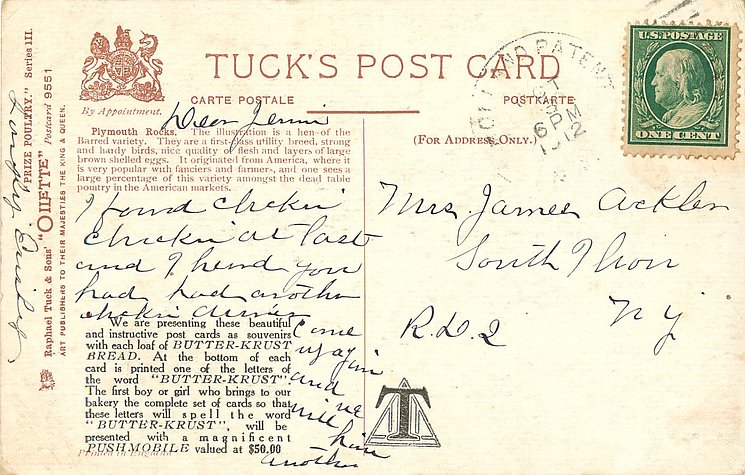 TUCK'S POST CARD
By Appointment.
CARTE POSTALE
POSTKARTE
(FOR ADDRESS ONLY.)
HOLLAND PATENT
U.S. POSTAGE
ONE CENT
Raphael Tuck & Sons' "OILETTE" Postcard 9551
"PRIZE POULTRY." Series III.
ART PUBLISHERS TO THEIR MAJESTIES THE KING & QUEEN.
Dear Jennie
Plymouth Rocks. The illustration is a hen of the
Barred variety. They are a first-class utility breed, strong
and hardy birds, nice quality of flesh and layers of large
brown shelled eggs. It originated from America, where it
is very popular with fanciers and farmers, and one sees a
large percentage of this variety amongst the dead table
poultry in the American markets.
I found chickin
chickin at last
and I heird you
had had another
chickin dinner
Come
up again
and
we
will have
another
We are presenting these beautiful
and instructive post cards as souvenirs
with each loaf of BUTTER-KRUST
BREAD. At the bottom of each
card is printed one of the letters of
the word "BUTTER-KRUST"
The first boy or girl who brings to our
bakery the complete set of cards so that
these letters will spell the word
"BUTTER-KRUST", will be
presented with a magnificent
PUSHMOBILE valued at $50.00
Printed in England
T
Mrs James Ackler
South Trenton
R.D.2
NY